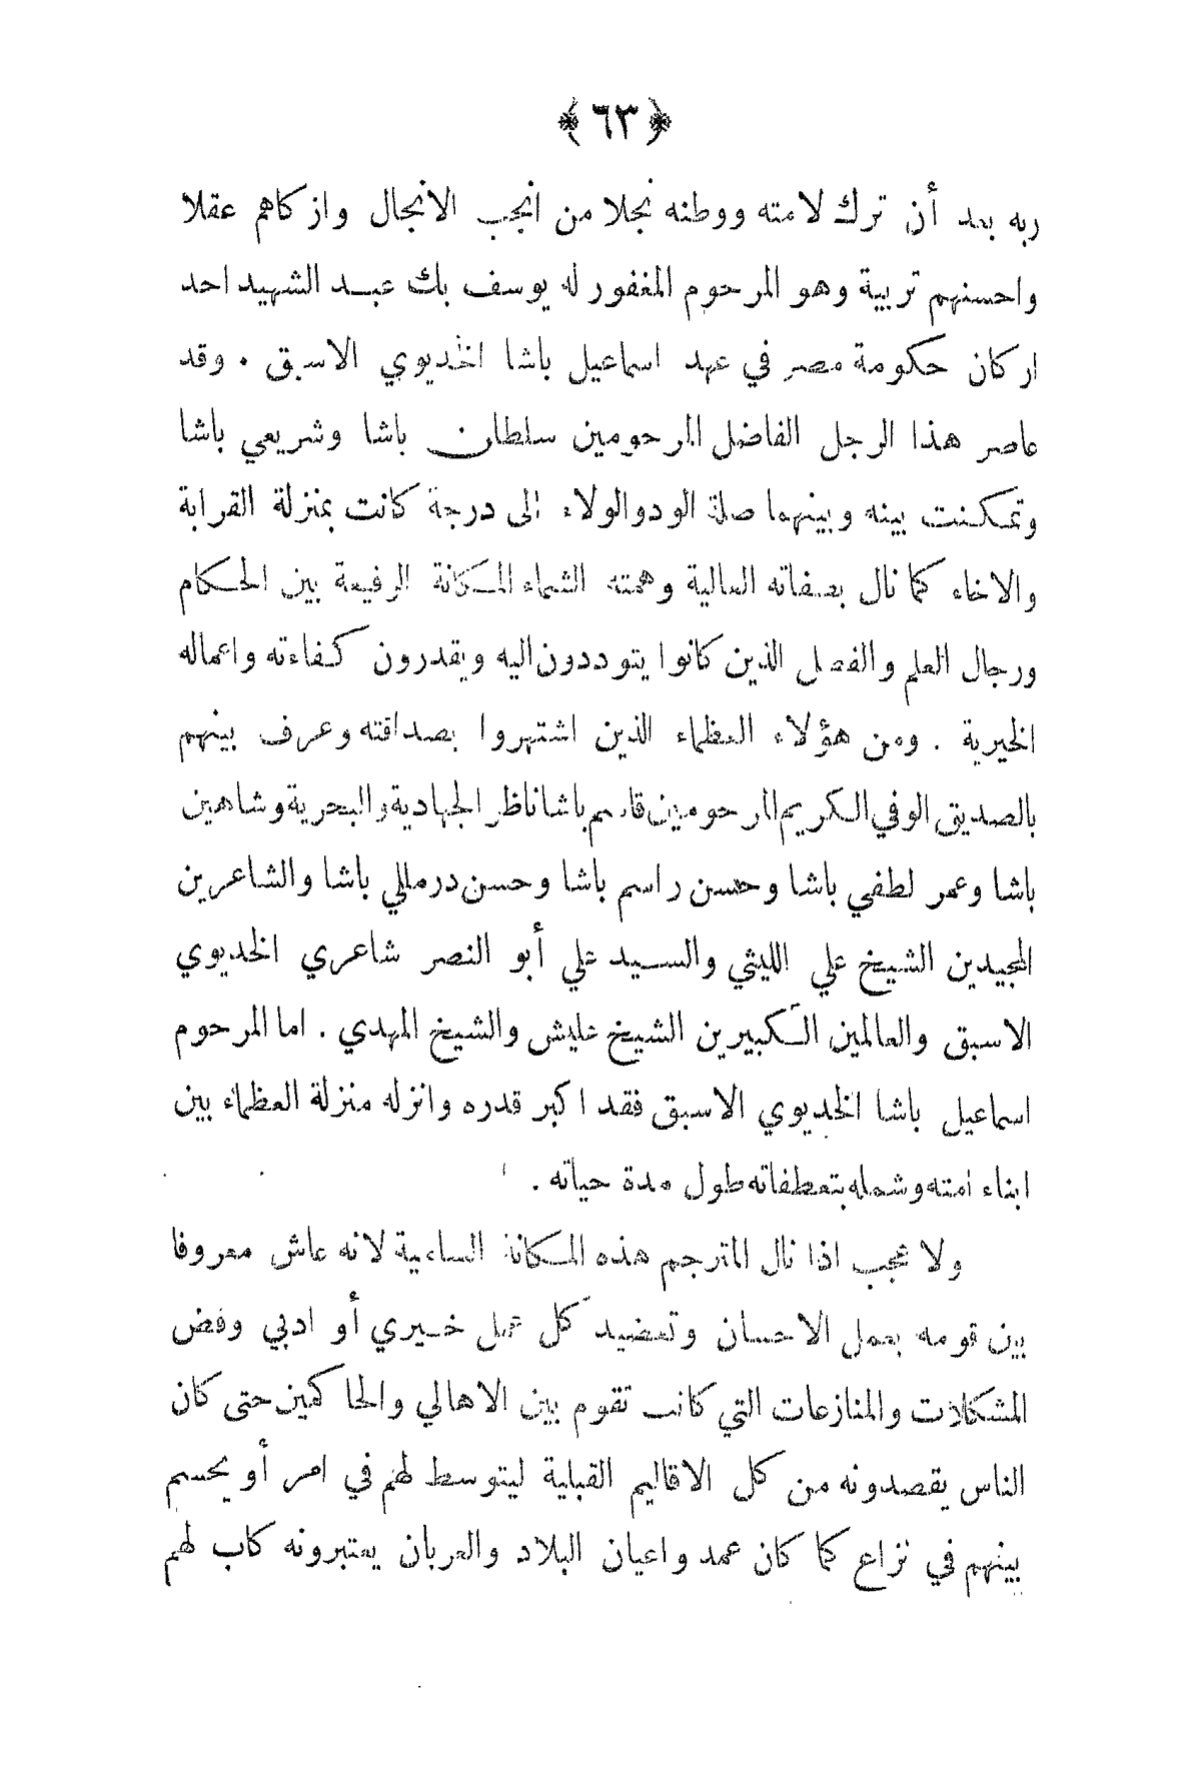 ﴿ ٦٣ ﴾
ربه بعد أن ترك لامته ووطنه نجلا من انجب الانجال وازكاهم عقلا
واحسنهم تربية وهو المرحوم المغفور له يوسف بك عبد الشهيد احد
اركان حكومة مصر في عهد اسماعيل باشا الخديوي الاسبق . وقد
عاصر هذا الرجل الفاضل المرحومين سلطان باشا وشريعي باشا
وتمكنت بينه وبينهما صلة الود والولاء الى درجة كانت بمنزلة القرابة
والاخاء كما نال بصفاته العالية وهمته الشماء المكانة الرفيعة بين الحكام
ورجال العلم والفضل الذين كانوا يتوددون اليه ويقدرون كفاءته واعماله
الخيرية . ومن هؤلاء العظماء الذين اشتهروا بصداقته وعرف بينهم
بالصديق الوفي الكريم المرحومين قاسم باشا ناظر الجهادية والبحرية وشاهين
باشا وعمر لطفي باشا وحسن راسم باشا وحسن درمللي باشا والشاعرين
المجيدين الشيخ علي الليثي والسيد علي أبو النصر شاعري الخديوي
الاسبق والعالمين الكبيرين الشيخ عليش والشيخ المهدي . اما المرحوم
اسماعيل باشا الخديوي الاسبق فقد اكبر قدره وانزله منزلة العظماء بين
ابناء امته وشمله بتعطفاته طول مدة حياته .
ولا عجب اذا نال المترجم هذه المكانة السامية لانه عاش معروفا
بين قومه بعمل الاحسان وتعضيد كل عمل خيري أو ادبي وفض
المشكلات والمنازعات التي كانت تقوم بين الاهالي والحاكمين حتى كان
الناس يقصدونه من كل الاقاليم القبلية ليتوسط لهم في امر أو يحسم
بينهم في نزاع كما كان عمد واعيان البلاد والعربان يعتبرونه كاب لهم